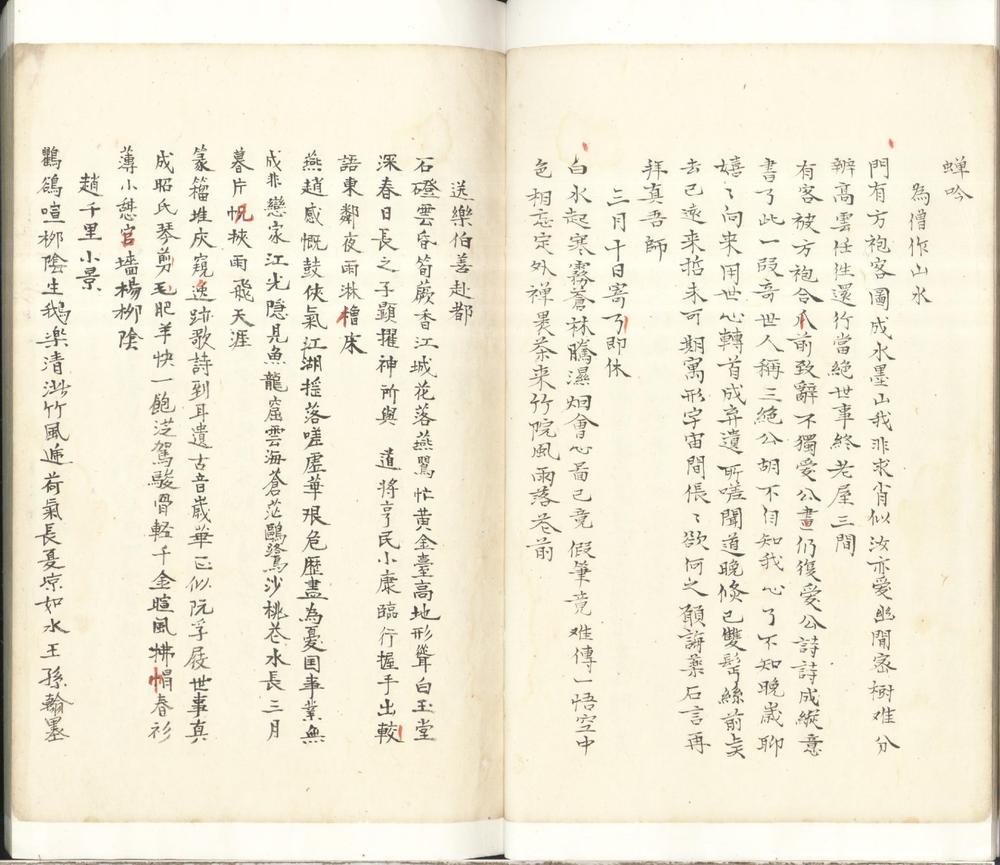 蟬吟
為僧作山水
門有方袍客圖成水墨山我非求肖似汝亦愛幽閒密樹难分
辨高雲任往還行當絕世事終老屋三間
有客被方袍合爪前致辭不獨愛公畫仍復愛公詩詩成縱意
書了此一段奇世人稱三絕公胡不自知我心了不知晚歲聊
嬉〻向来用世心轉首成弃遺所嗟聞道晚倏已雙髩絲前矣
去已遠来哲未可期寓形宇宙間倀〻欲何之願誨藥石言再
拜真吾師
三月十日寄了即休
白水起寒霧蒼林騰濕烟會心畐已竟假筆竟难傳一悟空中
色相忘定外禅異茶来竹院風雨落巷前
送樂伯善赴都
石磴雲昏筍蕨香江城花落燕鶯忙黄金臺高地形聳白玉堂
深春日長之子顯擢神所與 道將亨民小康臨行握手出較
語東鄰夜雨淋檜床
燕趙感慨鼓俠氣江湖摇落嗟虛華艰危歴盡為憂国事業無
成非戀家江光隱見魚龍窟雲海蒼茫鷗鷺沙桃巷水長三月
暮片帆挾雨飛天涯
篆籀堆灰窺逸跡歌詩到耳遺古音歲華正似阮孚屐世事真
成昭氏琴剪毛肥羊快一飽泛駕駿骨輕千金暄風拂帽春衫
薄小憩官墻楊柳陰
趙千里小景
鸜鵒喧柳陰生鵝㴑清泚竹風逓荷氣長夏凉如水王孫翰墨